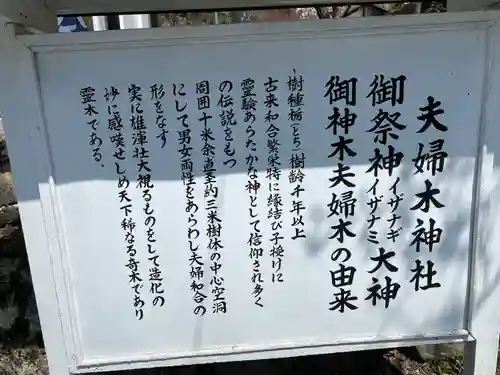 夫婦木神社
御祭神イザナギイザナミ大神
御神木夫婦木の由来
樹種栃(とち)樹齢千年以上
古来和合繁栄特に縁結び子授けに
霊験あらたかな神として信仰され多く
の伝説をもつ
周囲十米余直至約三米樹体の中心空洞
にして男女両性をあらわし夫婦和合の
形をなす
実に雄渾壮大視るものをして造化の
妙に感嘆せしめ天下稀なる奇木であり
霊木である.